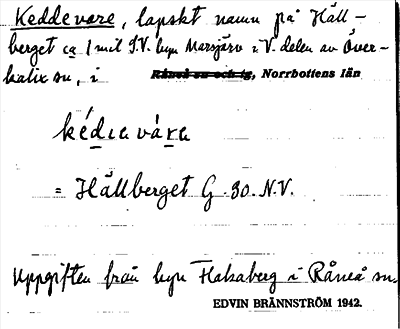 Keddevare, lapskt namn på Häll-
berget ca 1 mil S.V. byn Marsjärv i V. delen av Över-
kalix sn, i Råneå sn och tg, Norrbottens län
kédıa vára
= Hällberget G. 30. N.V.
Uppgiften från byn Halsaberg i Råneå sn.
EDVIN BRÄNNSTRÖM 1942.